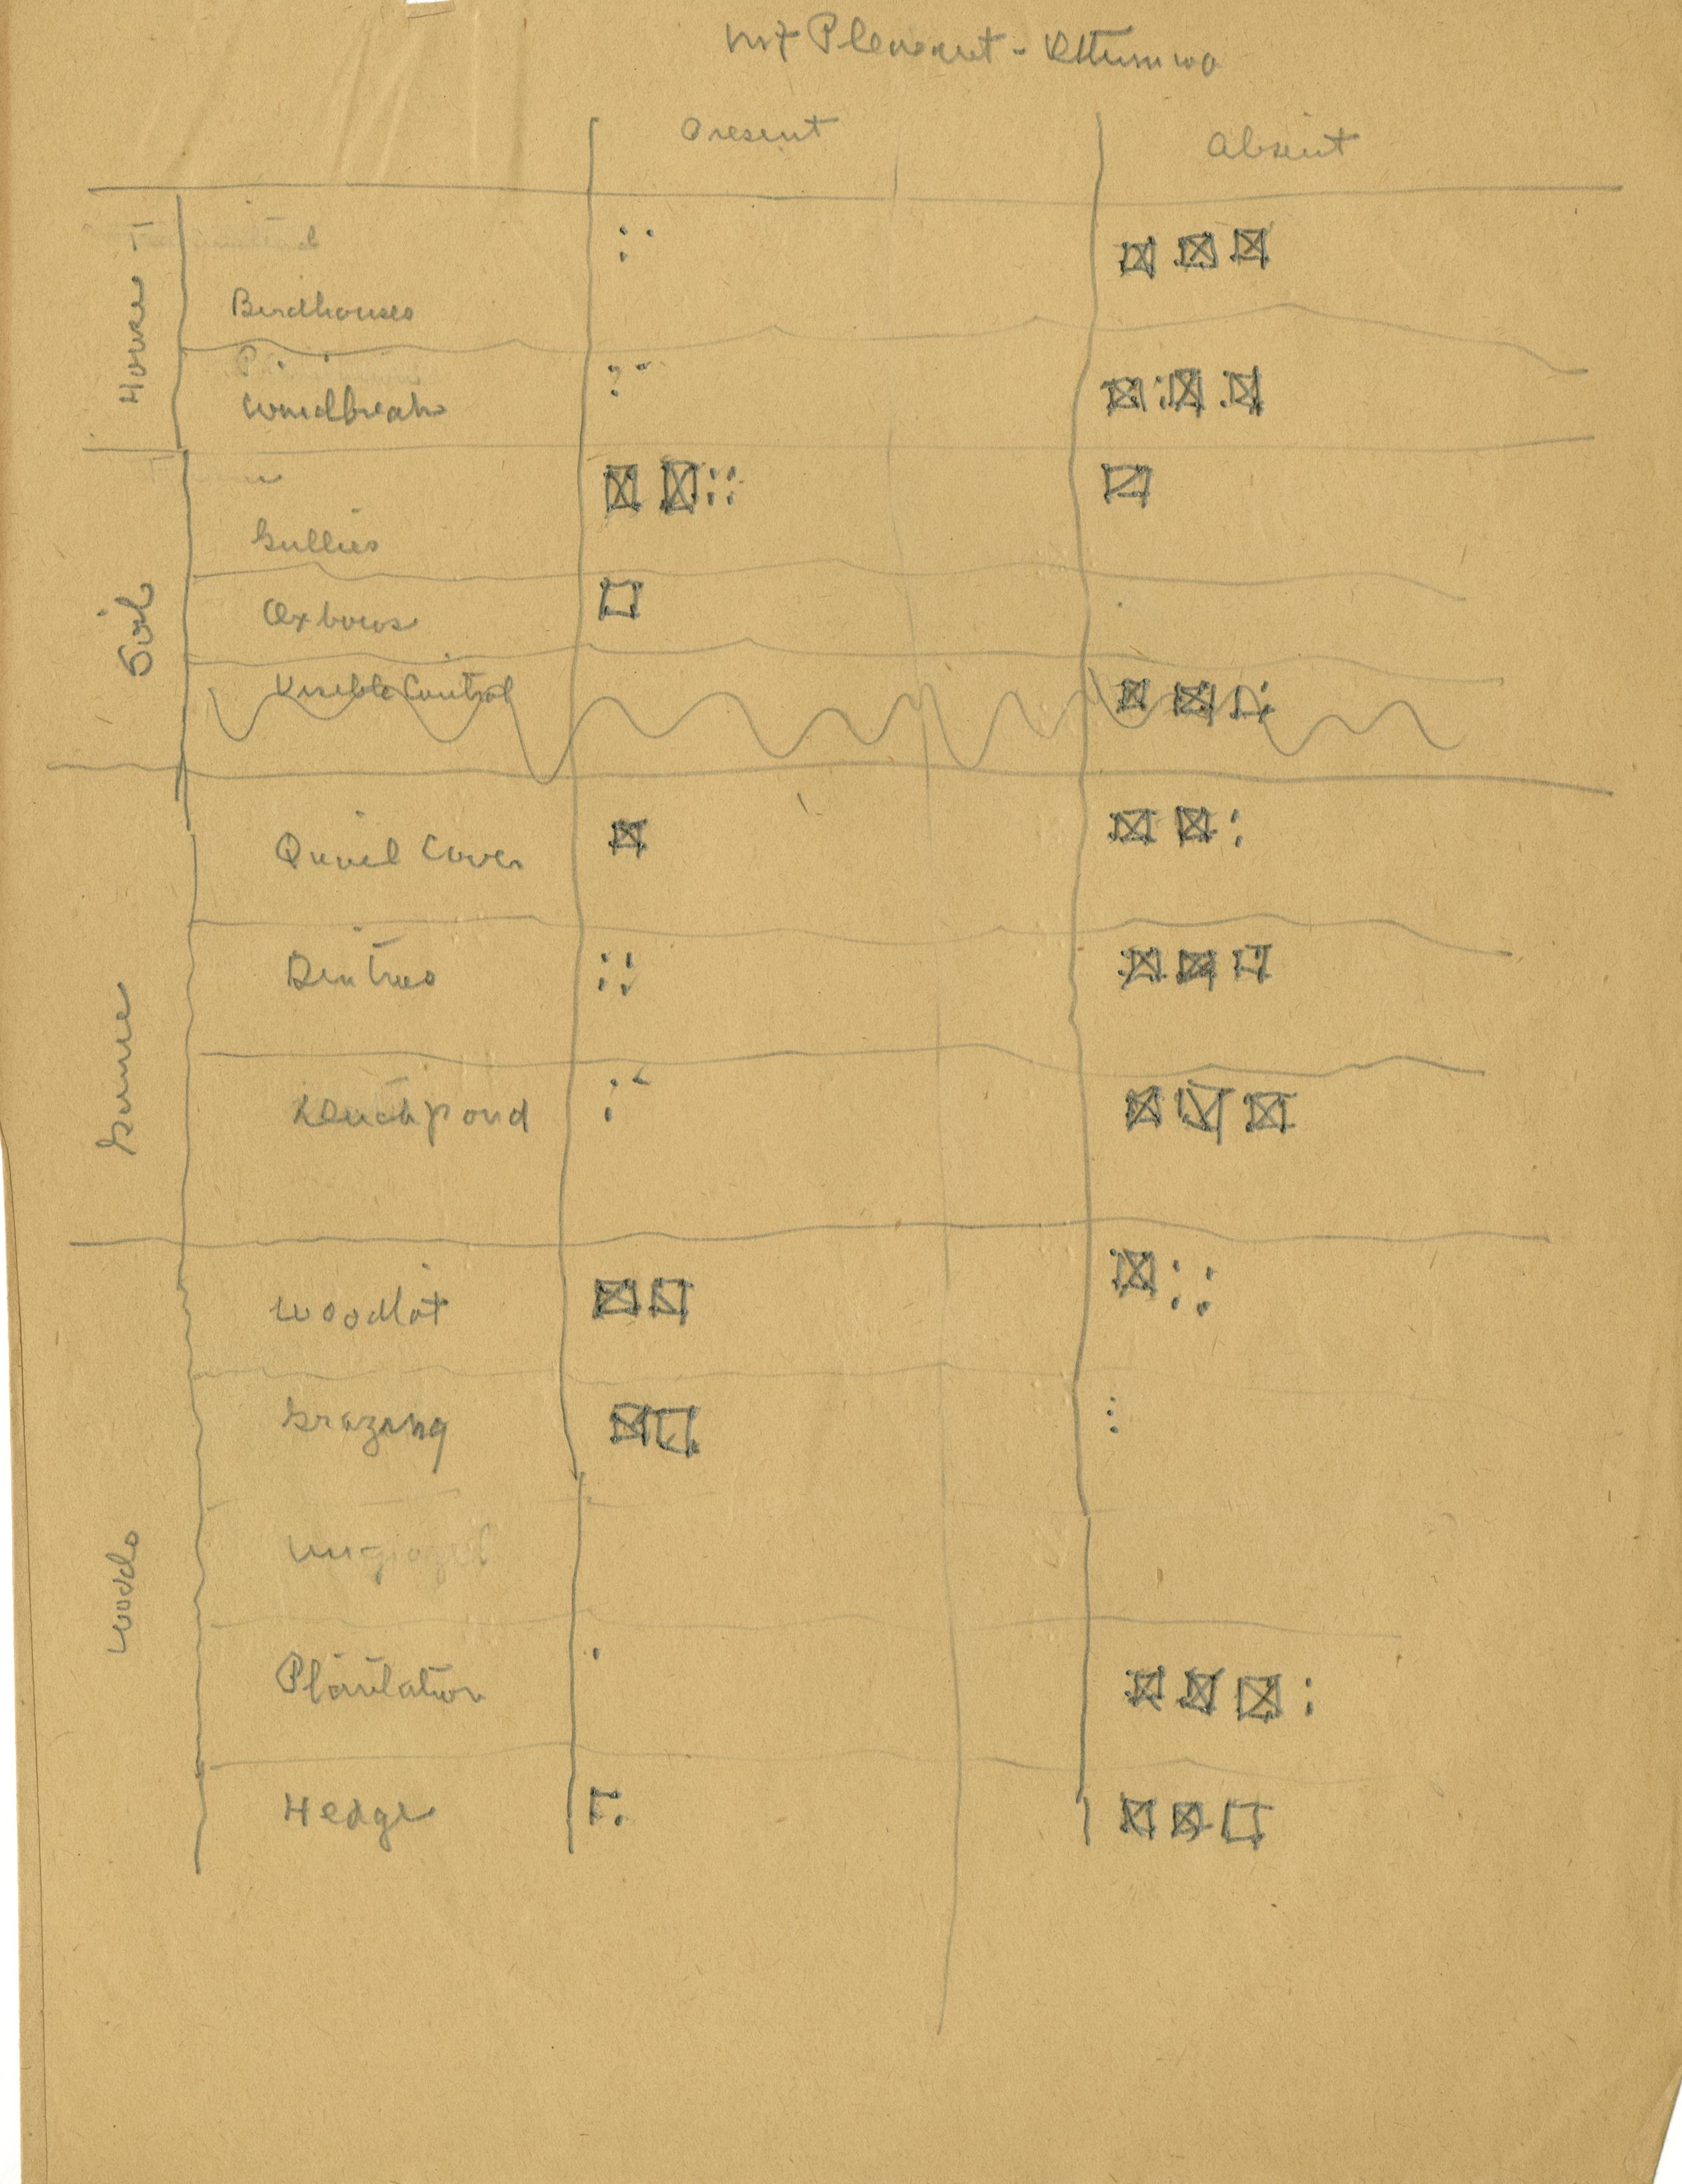 Mt Pleasant - Ottumwa
Present Absent
House
Birdhouses
Windbreak
Soil
Gullies
Oxbows
Visible Control
Game
Quail Cover
Den trees
Duck pond
Woods
Woodlot
Grazing
Ungrazed
Plantation
Hedge